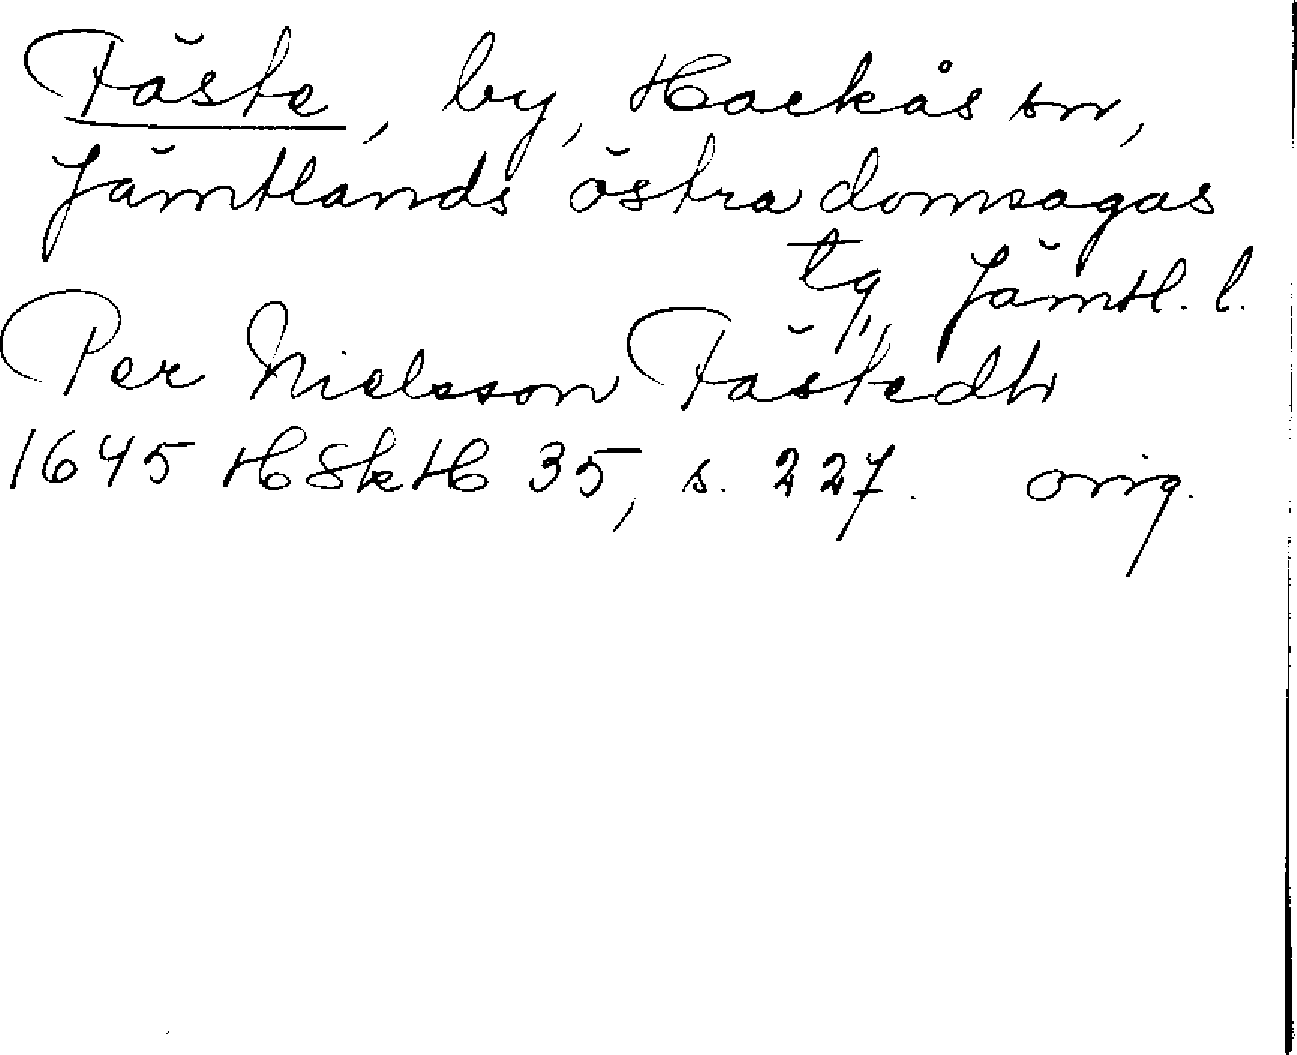 Fäste, by, Hackås sn,
Jämtlands östra domsagas
tg, Jämtl. l.
Per Nielsson Fästedh
1645 HSkH 35, s. 227. orig.